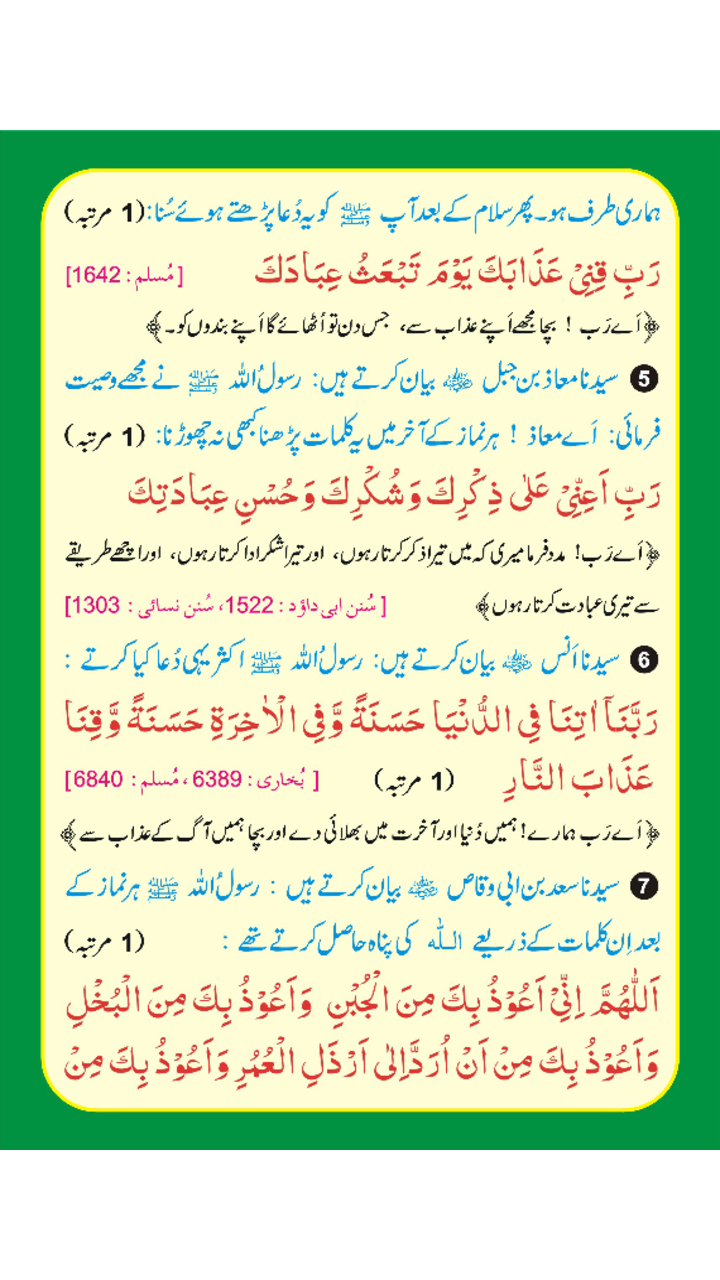 ہماری طرف ہو۔ پھر سلام کے بعد آپ ﷺ کو یہ دُعا پڑھتے ہوئے سُنا: (1 مرتبہ)
رَبِّ قِنِیْ عَذَابَكَ یَوْمَ تَبْعَثُ عِبَادَكَ [مُسلم : 1642]
﴿اَے رَب ! بچا مجھے اَپنے عذاب سے، جس دن تو اُٹھائے گا اَپنے بندوں کو۔﴾
5 سیدنا معاذ بن جبل ؓ بیان کرتے ہیں: رسولُ اللہ ﷺ نے مجھے وصیت
فرمائی: اَے معاذ ! ہر نماز کے آخر میں یہ کلمات پڑھنا کبھی نہ چھوڑنا: (1 مرتبہ)
رَبِّ اَعِنِّیْ عَلٰی ذِكْرِكَ وَشُكْرِكَ وَحُسْنِ عِبَادَتِكَ
﴿اَے رَب! مدد فرما میری کہ میں تیرا ذکر کرتا رہوں، اور تیرا شکر ادا کرتا رہوں، اور اچھے طریقے
سے تیری عبادت کرتا رہوں﴾ [سُنن ابی داؤد : 1522، سُنن نسائی : 1303]
6 سیدنا اَنس ؓ بیان کرتے ہیں: رسولُ اللہ ﷺ اکثر یہی دُعا کیا کرتے :
رَبَّنَآ اٰتِنَا فِی الدُّنْیَا حَسَنَةً وَّفِی الْاٰخِرَةِ حَسَنَةً وَّقِنَا
عَذَابَ النَّارِ (1 مرتبہ) [بُخاری : 6389 ، مُسلم : 6840]
﴿اَے رَب ہمارے! ہمیں دُنیا اور آخرت میں بھلائی دے اور بچا ہمیں آگ کے عذاب سے﴾
7 سیدنا سعد بن ابی وقاص ؓ بیان کرتے ہیں : رسولُ اللہ ﷺ ہر نماز کے
بعد اِن کلمات کے ذریعے اللہ کی پناہ حاصل کرتے تھے : (1 مرتبہ)
اَللّٰهُمَّ اِنِّیْ اَعُوْذُ بِكَ مِنَ الْجُبْنِ وَاَعُوْذُ بِكَ مِنَ الْبُخْلِ
وَاَعُوْذُ بِكَ مِنْ اَنْ اُرَدَّ اِلٰی اَرْذَلِ الْعُمُرِ وَاَعُوْذُ بِكَ مِنْ